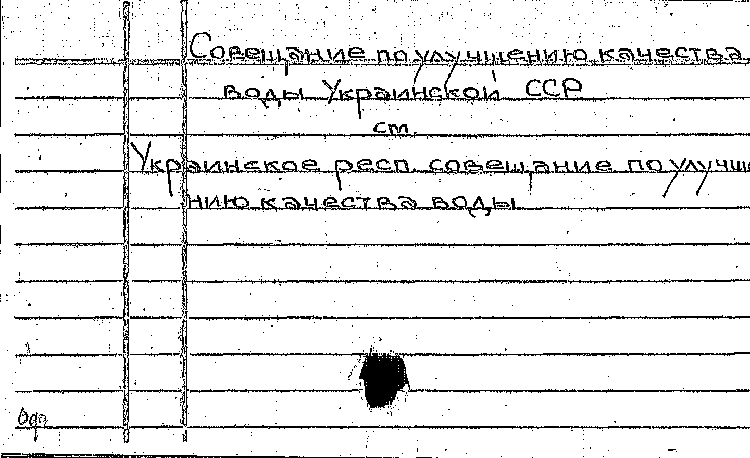 Совещание по улучшению качества
воды Украинской ССР
ст.
Украинское респ. совещание по улучше
нию качества воды